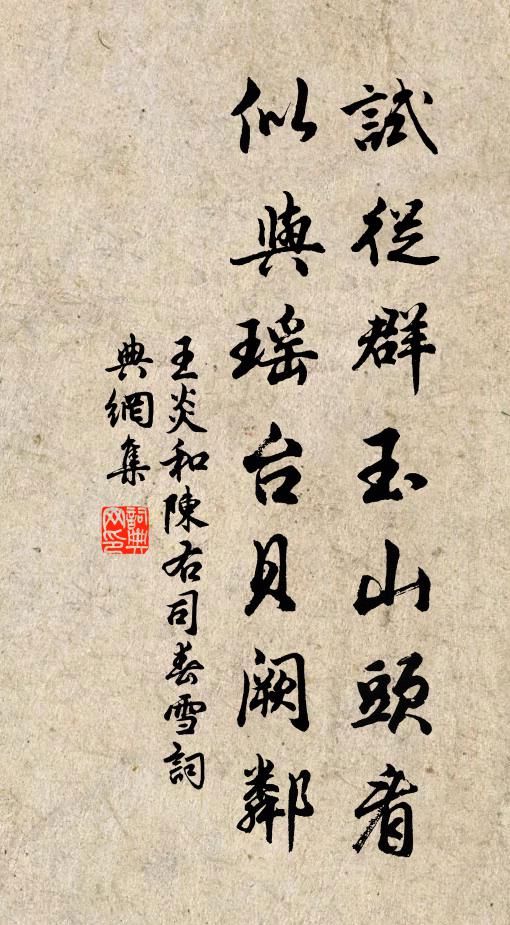 試從群玉山頭看
似與瑶台貝阙鄰
王炎和陳右司春雪詞
典網集
詞典网印